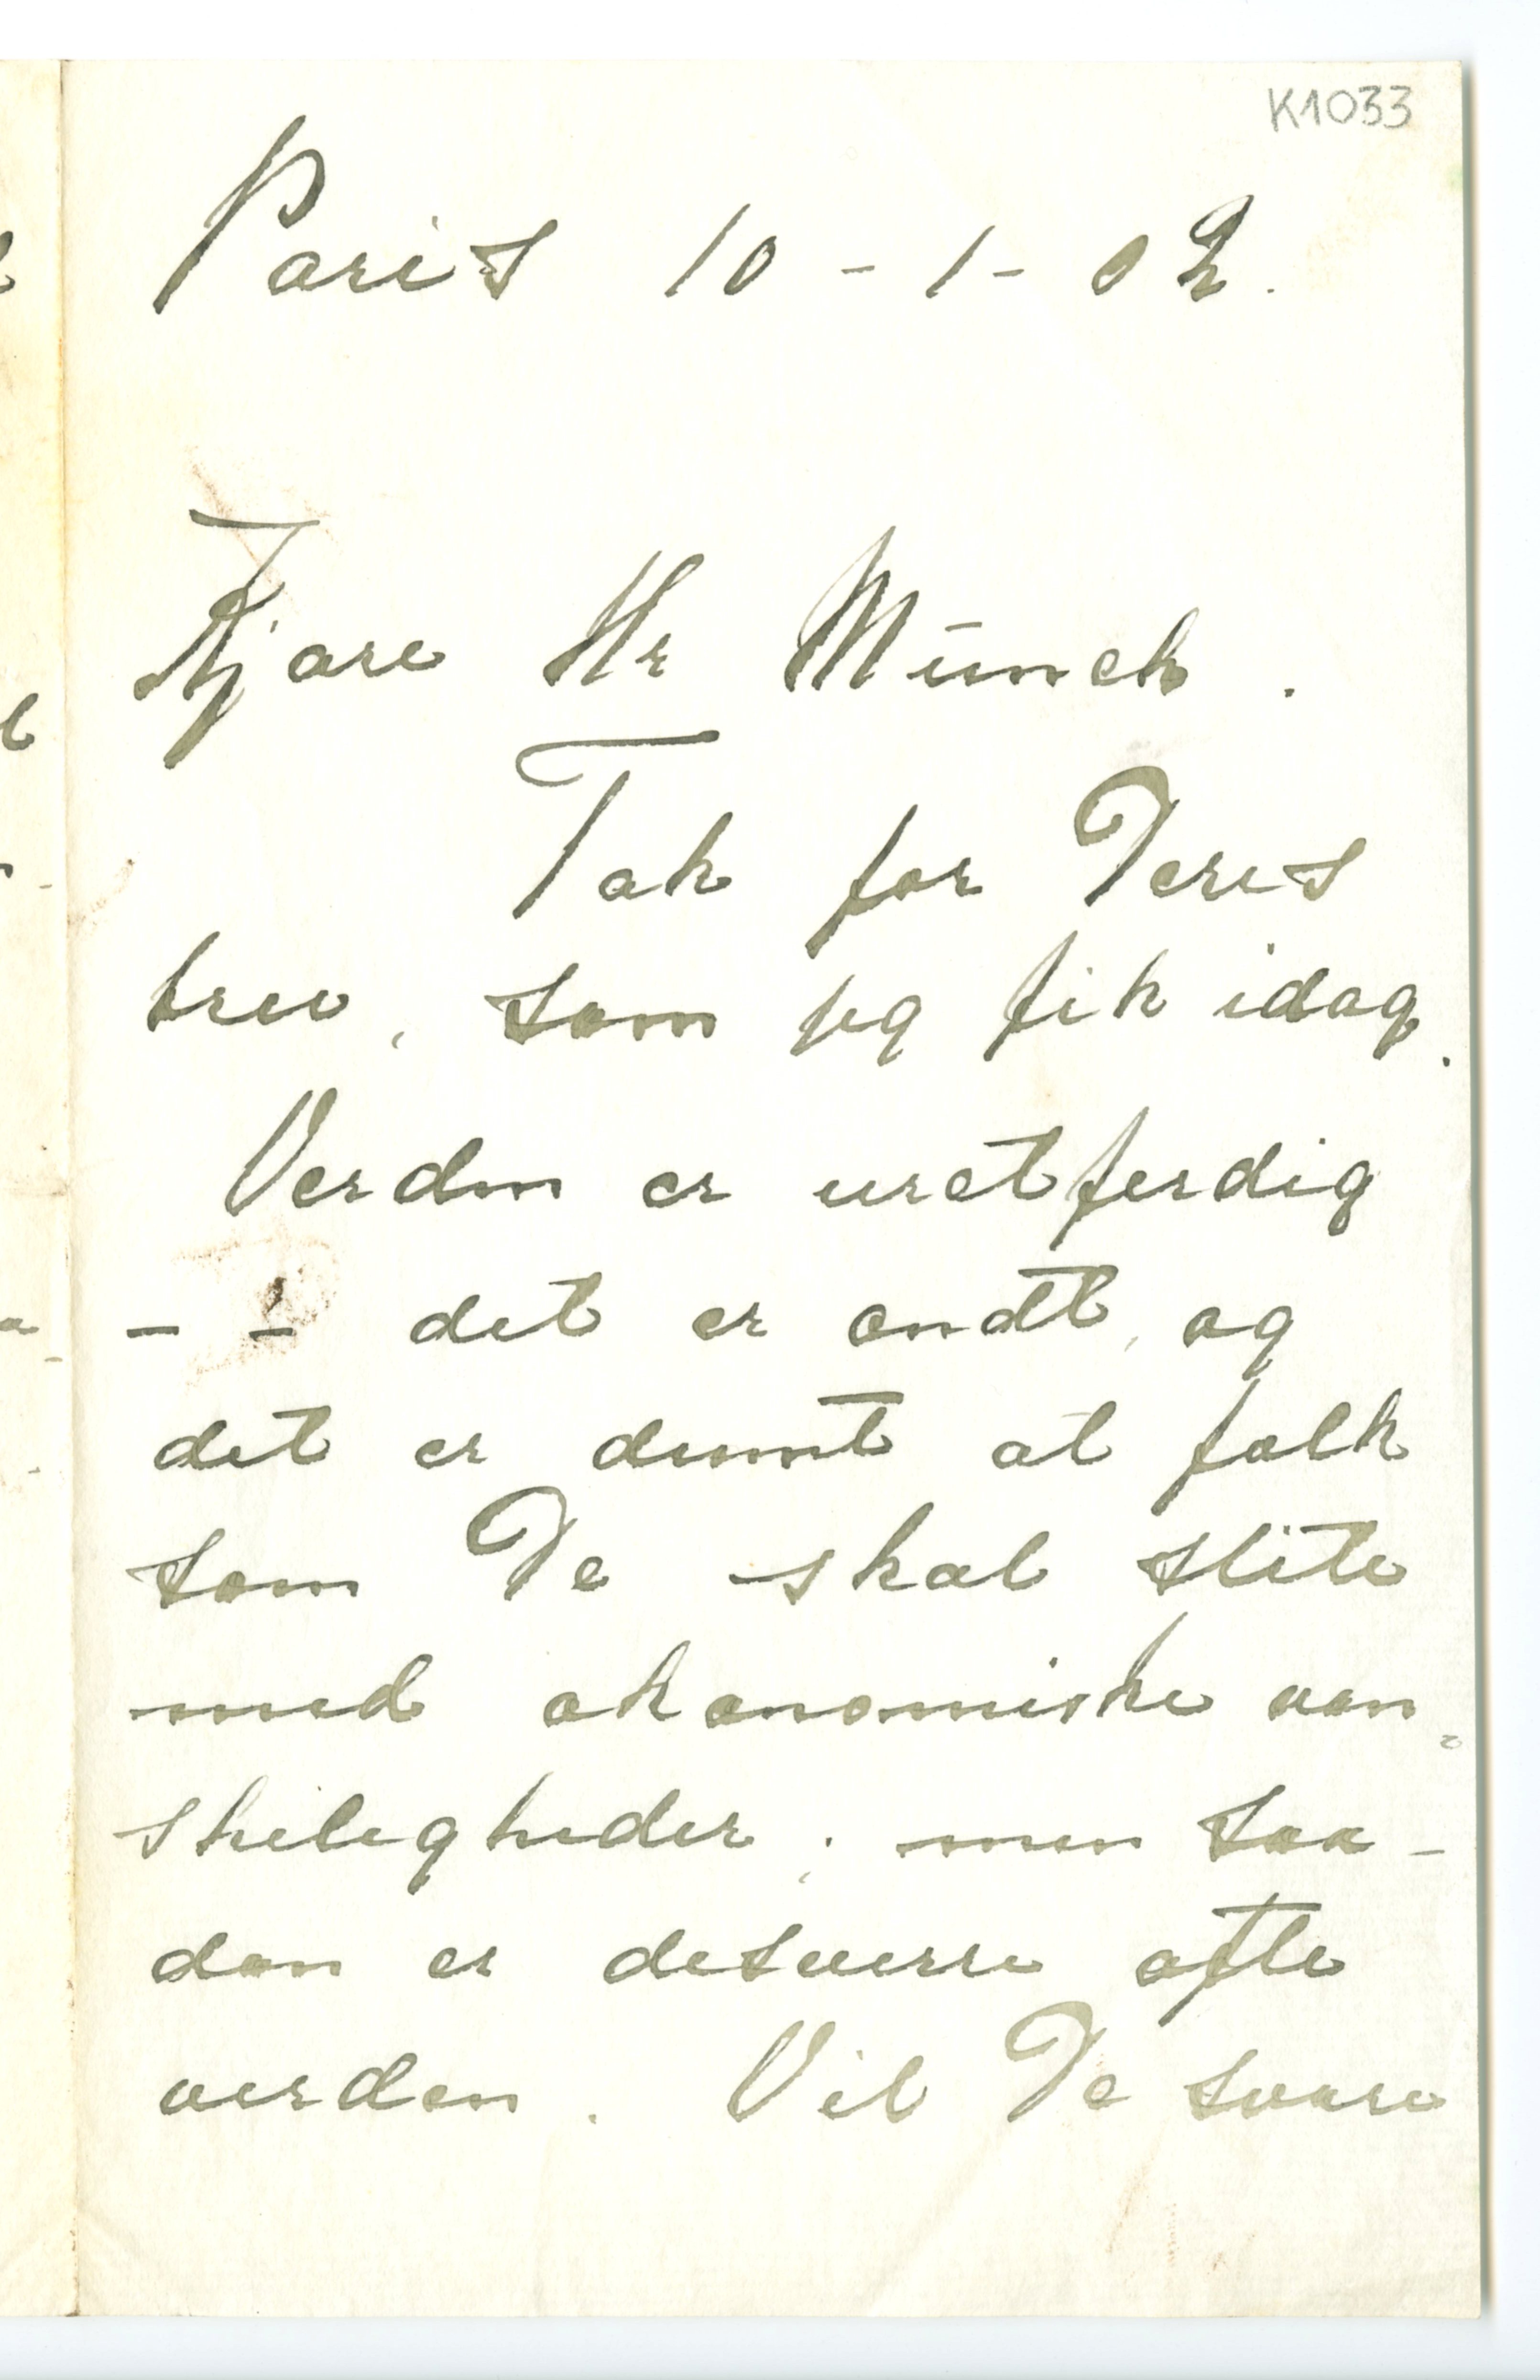 K1033
Paris 10 - 1 - 02.
Kjære Hr Munch.
Tak for Deres
brev, som jeg fik idag.
Verden er uretferdig
- - det er ondt, og
det er dumt at folk
som De skal slite
med økonomiske van-
skeligheder; men saa-
dan er desverre ofte
verden. Vil De svare